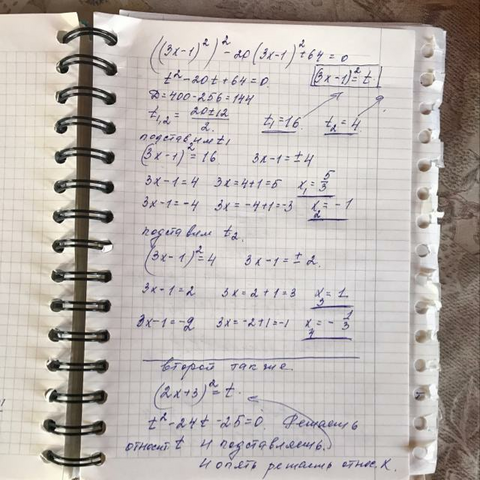 ((3x-1)²)² - 20(3x-1)² + 64 = 0
t² - 20t + 64 = 0 (3x-1)² = t
D = 400 - 256 = 144
t₁,₂ = (20±12)/2. t₁ = 16 t₂ = 4
подставим t₁
(3x-1)² = 16 3x-1 = ±4
3x-1 = 4 3x = 4+1 = 5 x₁ = 5/3
3x-1 = -4 3x = -4+1 = -3 x₂ = -1
подставим t₂.
(3x-1)² = 4 3x-1 = ±2.
3x-1 = 2 3x = 2+1 = 3 x₃ = 1
3x-1 = -2 3x = -2+1 = -1 x₄ = -1/3
второй также.
(2x+3)² = t.
t² - 24t - 25 = 0. Решаешь
относит t И подставляешь.
И опять решаешь относ. x.